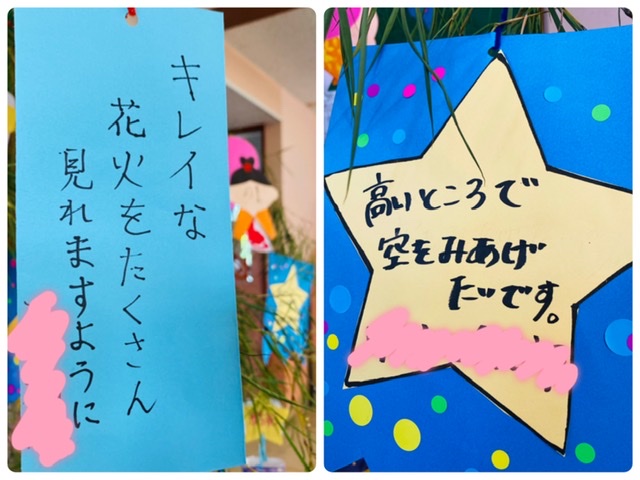 キレイな
花火をたくさん
見れますように
高いところで
空をみあげ
たいです。